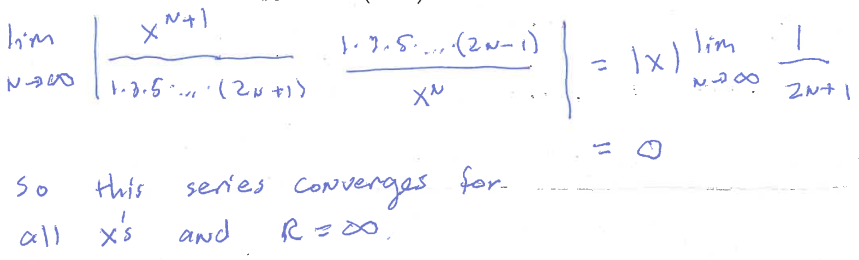 lim N→∞ | x^{N+1} / 1·3·5·...·(2N+1) · 1·3·5·...·(2N-1) / x^N | = |x| lim N→∞ 1 / 2N+1
= 0
So this series converges for
all x's and R = ∞.